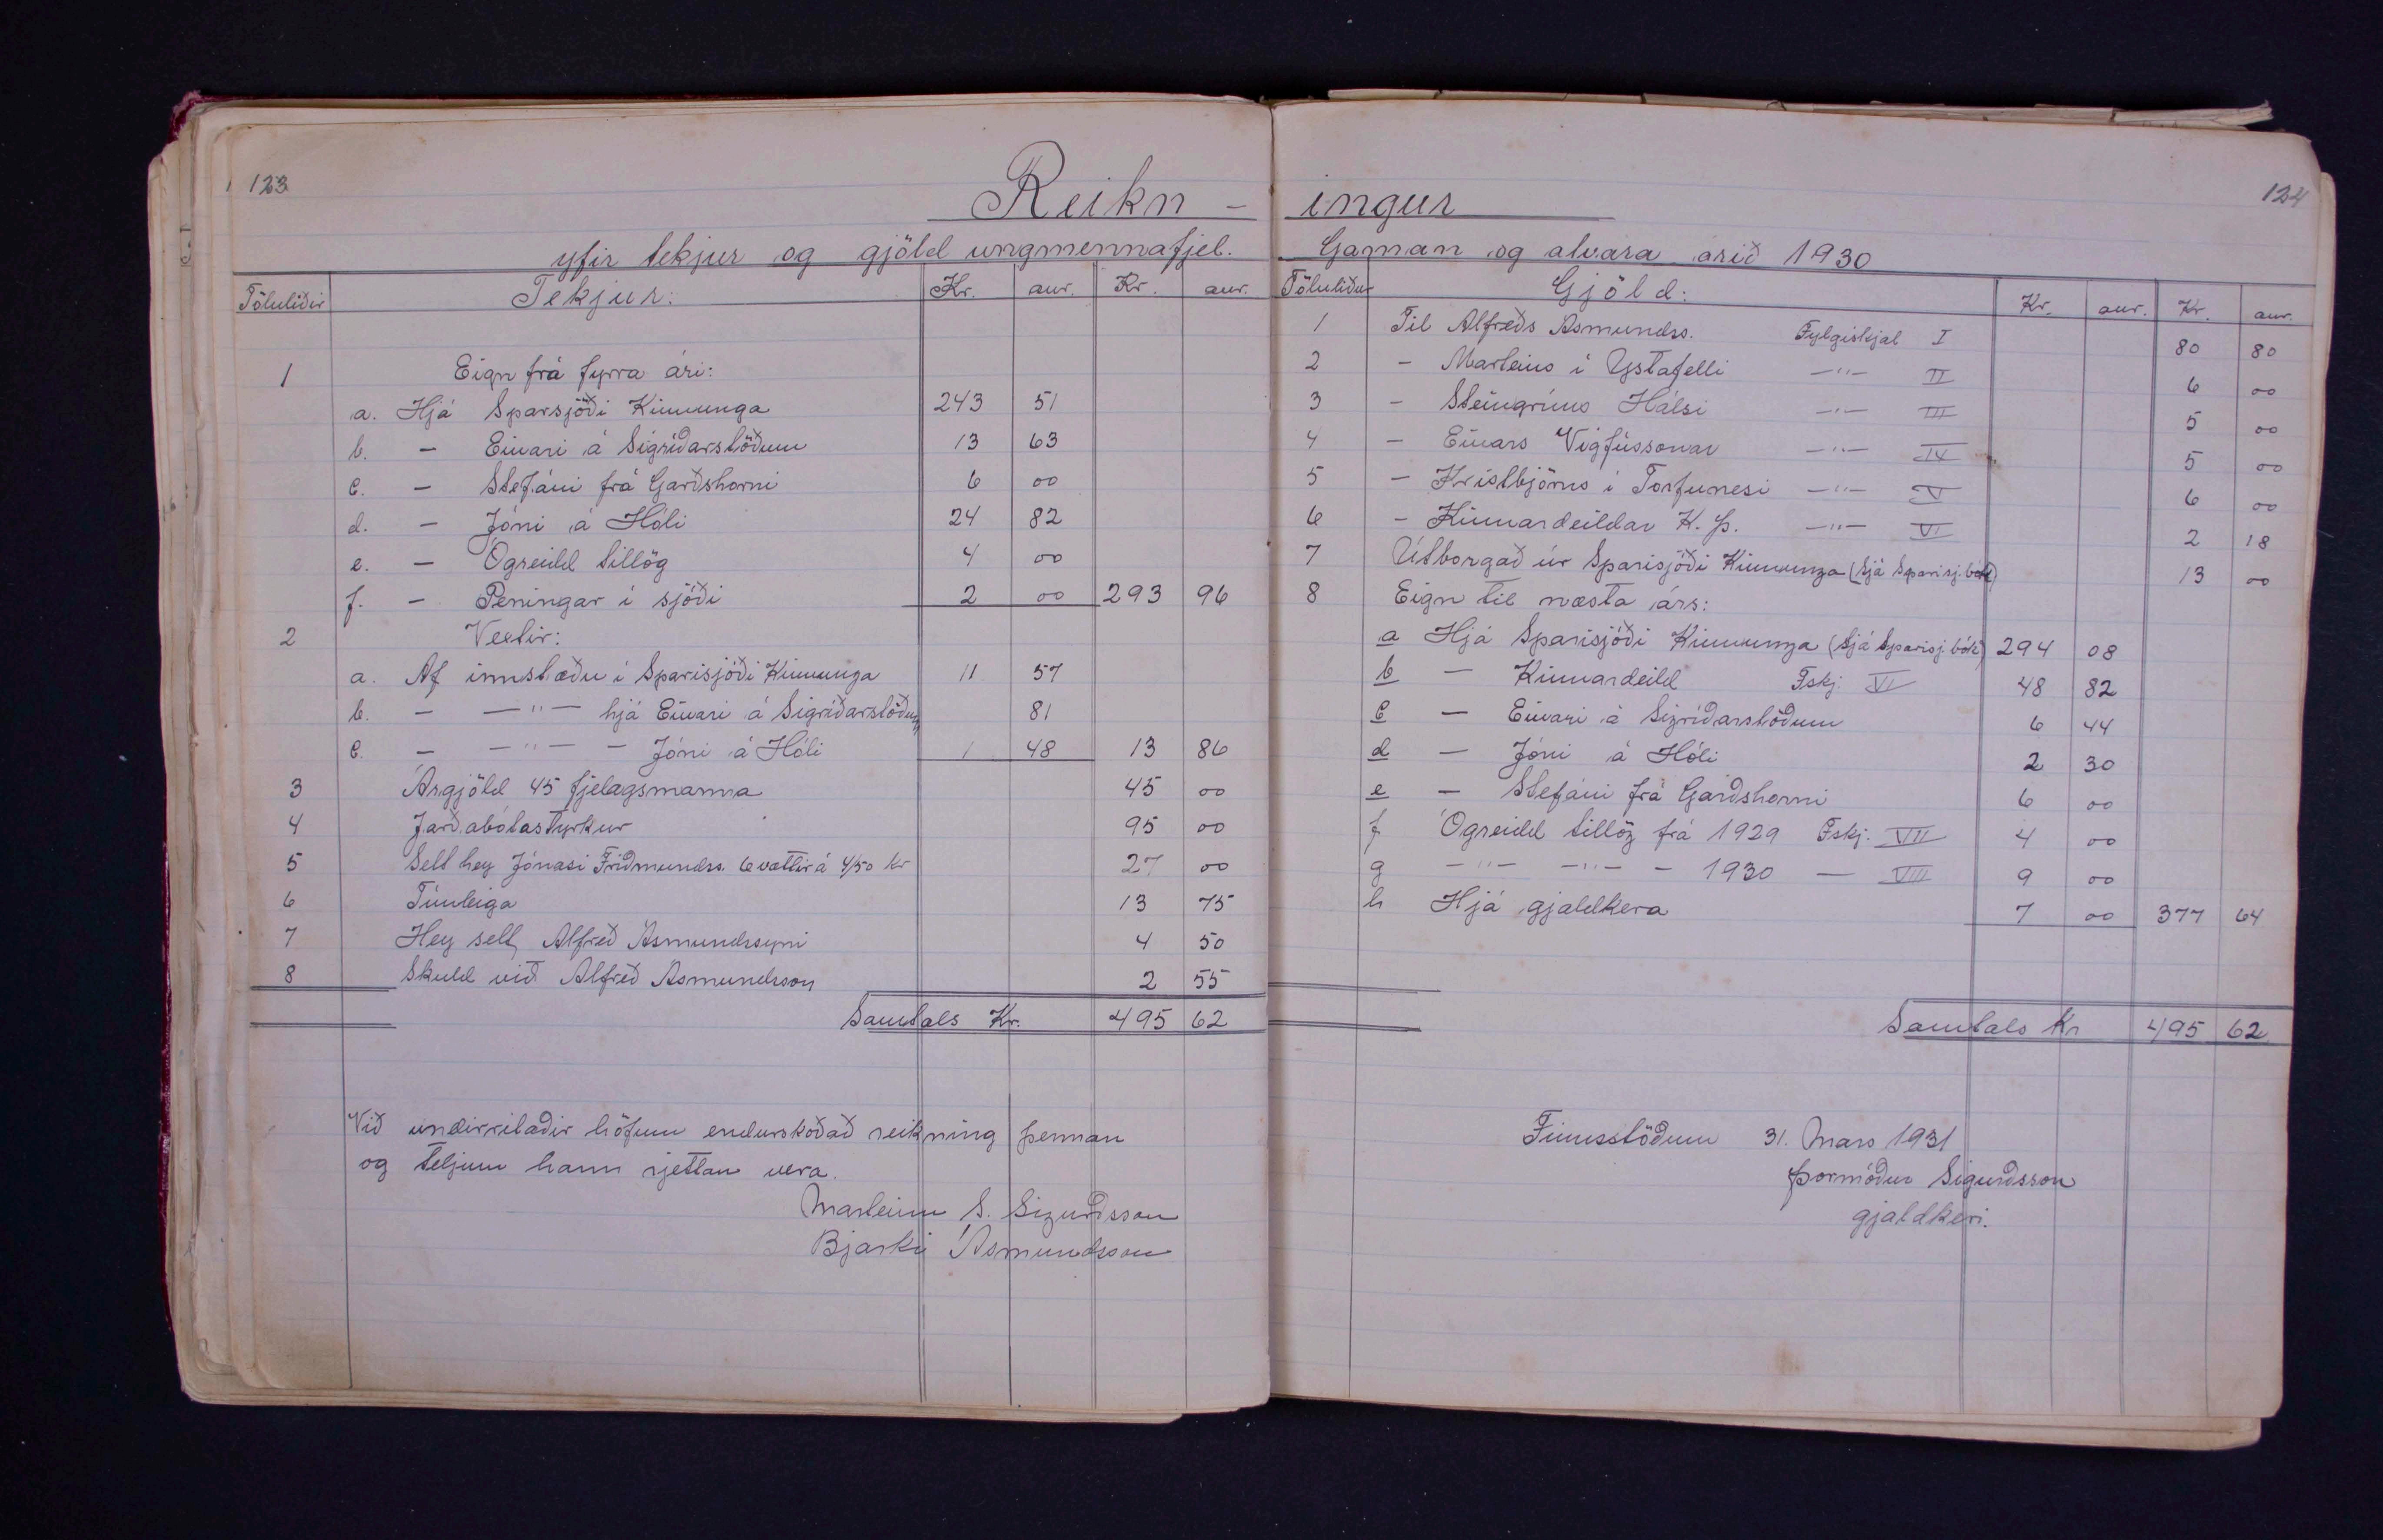 123
Reikn -
yfir tekjur og gjöld ungmennafjel.
Töluliðir Tekjur: Kr. aur. Kr. aur.
1 Eign frá fyrra ári:
a. Hjá Sparsjóði Kinnunga 243 51
b. — Einari á Sigríðarstöðum 13 63
c. — Stefáni frá Garðshorni 6 00
d. — Jóni á Hóli 24 82
e. — Ógreidd tillög 4 00
f. — Peningar í sjóði 2 00 293 96
2 Vextir:
a. Af innstæðu í Sparisjóði Kinnunga 11 57
b. — —"— hjá Einari á Sigríðarstöðum 81
c. — —"— — Jóni á Hóli 1 48 13 86
3 Árgjöld 45 fjelagsmanna 45 00
4 Jarðabótastyrkur 95 00
5 Selt hey Jónasi Friðmundss. 6 vættir á 4/50 kr 27 00
6 Túnleiga 13 75
7 Hey selt Alfreð Ásmundssyni 4 50
8 Skuld við Alfreð Ásmundsson 2 55
Samtals Kr. 495 62
Við undirritaðir höfum endurskoðað reikning þennan
og teljum hann rjettan vera.
Marteinn S. Sigurðsson
Bjarki Ásmundsson
124
ingur
Gaman og alvara árið 1930
Töluliður Gjöld: Kr. aur. Kr. aur.
1 Til Alfreðs Ásmundss. Fylgiskjal I 80 80
2 — Marteins í Ystafelli —"— II 6 00
3 — Steingríms Hálsi —"— III 5 00
4 — Einars Vigfússonar —"— IV 5 00
5 — Kristbjörns í Torfunesi —"— V 6 00
6 — Kinnardeildar K. Þ. —"— VI 2 18
7 Útborgað úr Sparisjóði Kinnunga (sjá Sparisj. bók) 13 00
8 Eign til næsta árs:
a Hjá Sparisjóði Kinnunga (sjá Sparisj. bók) 294 08
b — Kinnardeild Fskj. VI 48 82
c — Einari á Sigríðarstöðum 6 44
d — Jóni á Hóli 2 30
e — Stefáni frá Garðshorni 6 00
f Ógreidd tillög frá 1929 Fskj. VII 4 00
g —"— —"— — 1930 — VIII 9 00
h Hjá gjaldkera 7 00 377 64
Samtals Kr 495 62
Finnsstöðum 31. Mars 1931
Þormóður Sigurðsson
gjaldkeri.